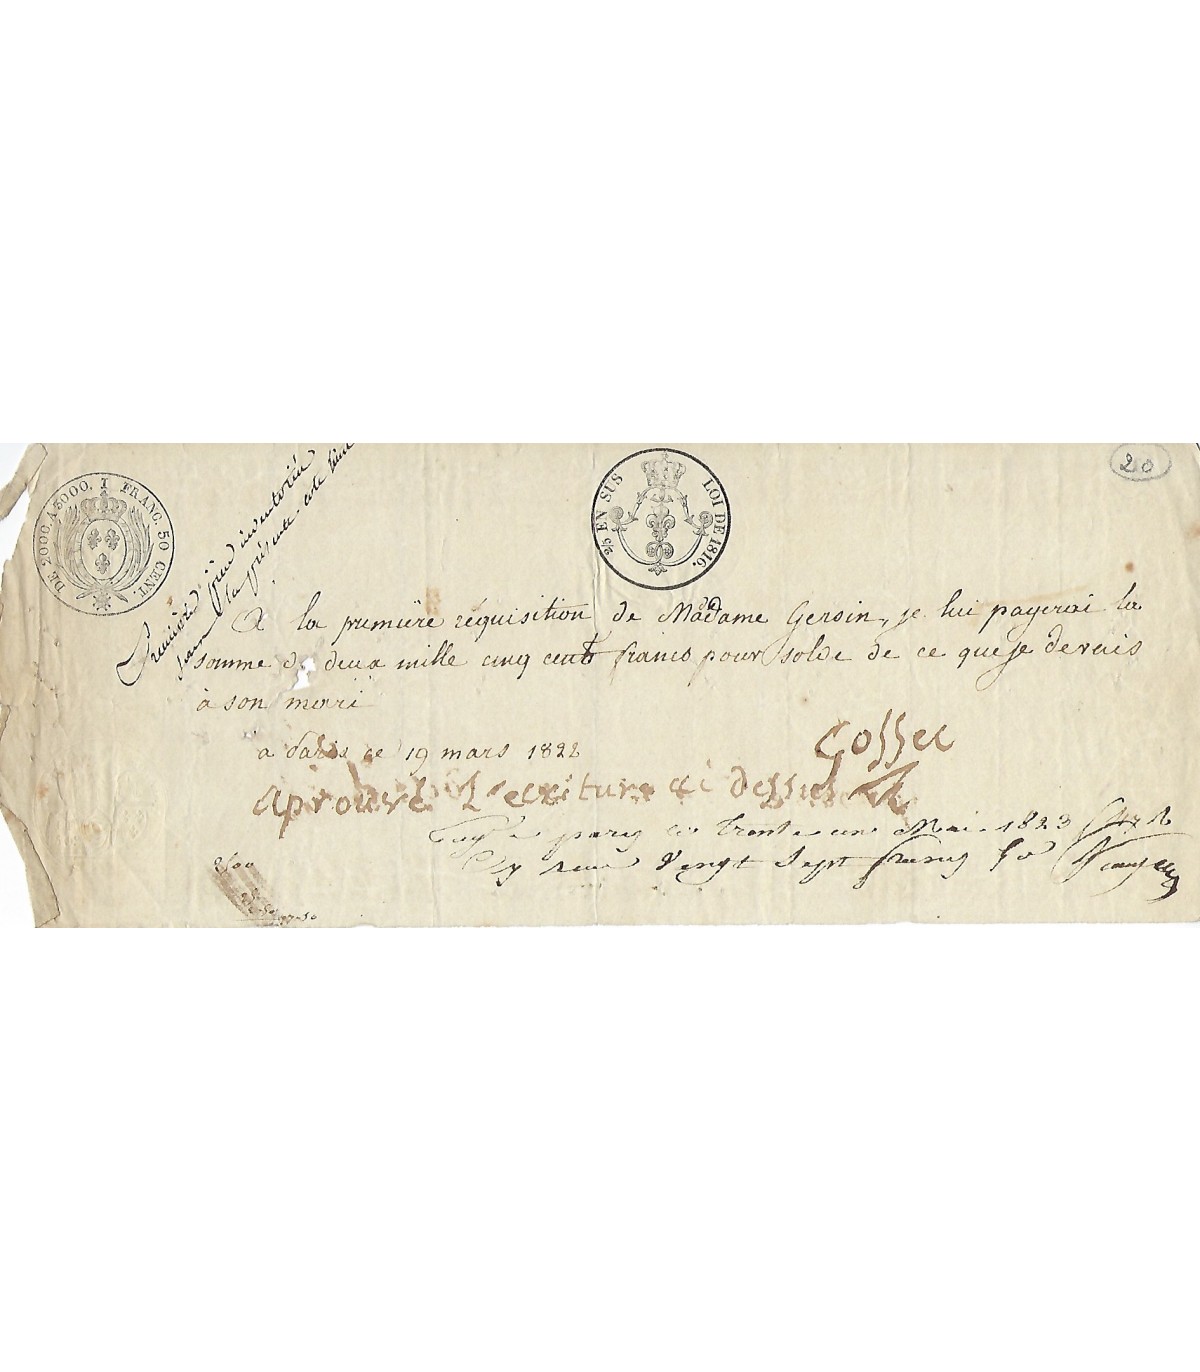 DE 2000. A 3000. 1 FRANC. 50 CENT.
2/5 EN SUS LOI DE 1816.
20
Premiere
la présente cote
A la première réquisition de Madame Gersin, je lui payerai la
somme de deux mille cinq cents francs pour solde de ce que je devais
à son mari
a Paris ce 19 mars 1822
Gossec
aprouvé l'ecriture ci dessus
a paris ce trente un Mai 1823
vingt sept francs 50
2500